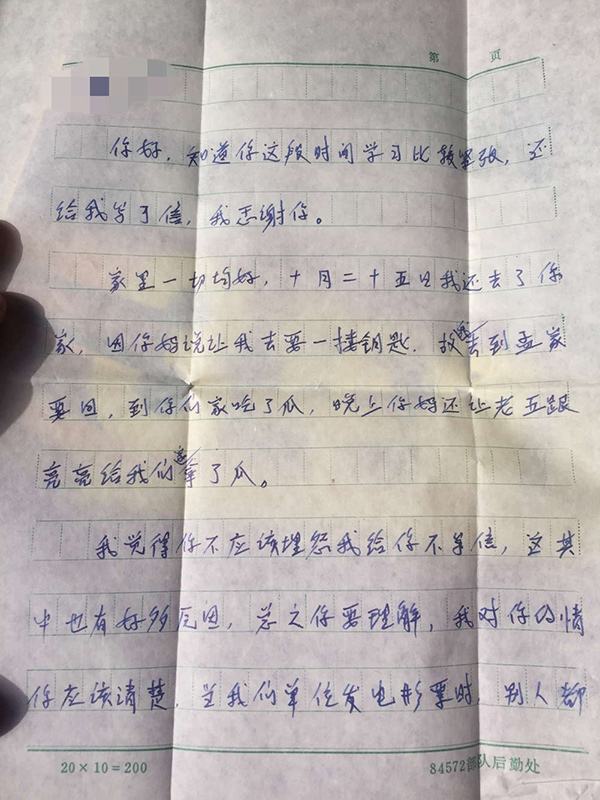 第 页
你好，知道你这段时间学习比较紧张，还
给我写了信，我恶谢你。
家里一切均好，十月二十五日我还去了你
家，因你妈说让我去要一接钥匙，故去到孟家
要回，到你们家吃了瓜，晚上你妈还让老五跟
亮亮给我们拿了瓜。
我觉得你不应该埋怨我给你不写信，这其
中也有好多原因，总之你要理解，我对你的情
你应该清楚，当我们单位发电影票时，别人都
20×10=200 84572部队后勤处